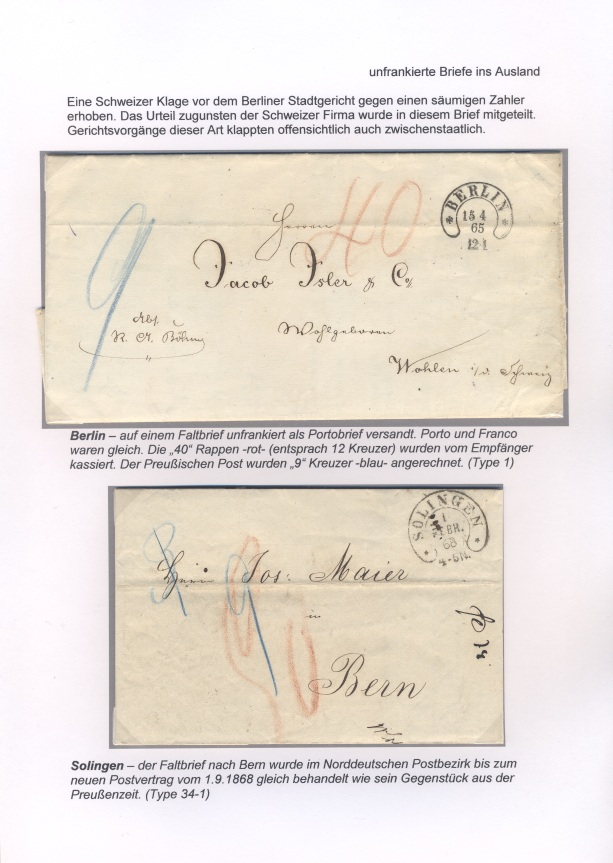 unfrankierte Briefe ins Ausland
Eine Schweizer Klage vor dem Berliner Stadtgericht gegen einen säumigen Zahler
erhoben. Das Urteil zugunsten der Schweizer Firma wurde in diesem Brief mitgeteilt.
Gerichtsvorgänge dieser Art klappten offensichtlich auch zwischenstaatlich.
BERLIN
15 4
65
12-1
40
9
Herren
Jacob Isler & Co
Abs.
R. A. Böhm
Wohlgeboren
Wohlen i/d. Schweiz
Berlin – auf einem Faltbrief unfrankiert als Portobrief versandt. Porto und Franco
waren gleich. Die „40“ Rappen -rot- (entsprach 12 Kreuzer) wurden vom Empfänger
kassiert. Der Preußischen Post wurden „9“ Kreuzer -blau- angerechnet. (Type 1)
SOLINGEN
1
BR.
68
4-5N.
Herrn Jos: Maier
9
in
Bern
Solingen – der Faltbrief nach Bern wurde im Norddeutschen Postbezirk bis zum
neuen Postvertrag vom 1.9.1868 gleich behandelt wie sein Gegenstück aus der
Preußenzeit. (Type 34-1)